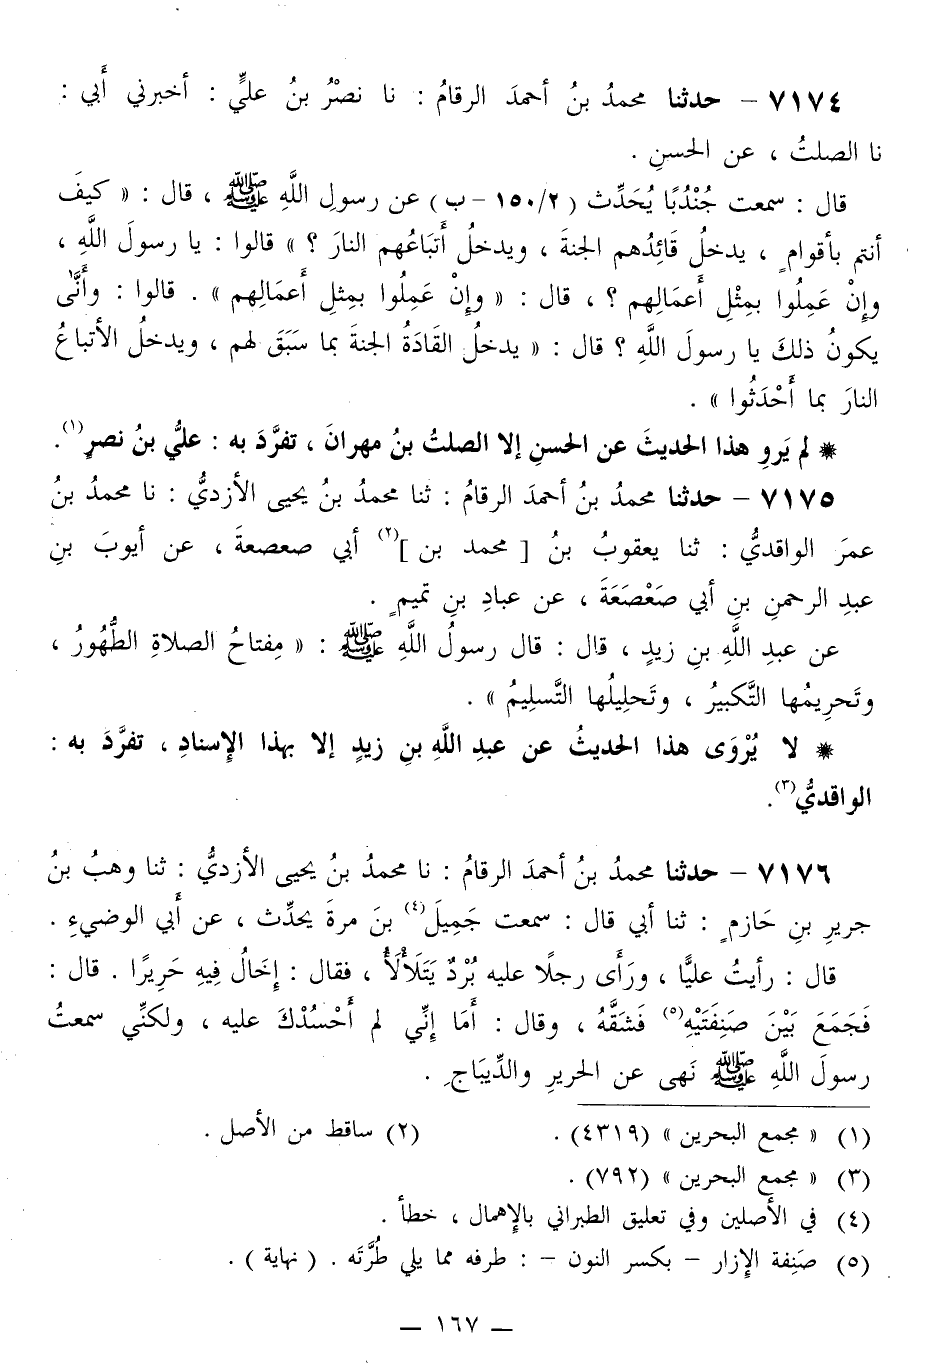 ٧١٧٤ – حدثنا محمدُ بنُ أحمدَ الرقامُ : نا نصْرُ بنُ عليٍّ : أخبرني أَبي :
نا الصلتُ ، عن الحسنِ .
قال : سمعت جُنْدُبًا يُحَدِّث (٢/١٥٠ – ب) عن رسولِ اللَّهِ ﷺ ، قال : « كيفَ
أنتم بأقوامٍ ، يدخلُ قَائِدُهم الجنةَ ، ويدخلُ أَتبَاعُهم النارَ ؟ » قالوا : يا رسولَ اللَّهِ ،
وإِنْ عَمِلُوا بمِثْلِ أَعمَالِهم ؟ ، قال : « وإِنْ عَمِلُوا بمِثلِ أَعمَالِهم » . قالوا : وأَنَّى
يكونُ ذلكَ يا رسولَ اللَّهِ ؟ قال : « يدخلُ القَادَةُ الجنةَ بما سَبَقَ لهم ، ويدخلُ الأتباعُ
النارَ بما أَحْدَثُوا » .
* لم يَروِ هذا الحديثَ عن الحسنِ إلا الصلتُ بنُ مهرانَ ، تفرَّدَ به : عليُّ بنُ نصرٍ(١).
٧١٧٥ – حدثنا محمدُ بنُ أحمدَ الرقامُ : ثنا محمدُ بنُ يحيى الأزديُّ : نا محمدُ بنُ
عمرَ الواقديُّ : ثنا يعقوبُ بنُ [ محمد بن ](٢) أبي صعصعةَ ، عن أيوبَ بنِ
عبدِ الرحمنِ بنِ أبي صَعْصَعَةَ ، عن عبادِ بنِ تميمٍ .
عن عبدِ اللَّهِ بنِ زيدٍ ، قال : قال رسولُ اللَّهِ ﷺ : « مِفتاحُ الصلاةِ الطُّهُورُ ،
وتَحرِيمُها التَّكبيرُ ، وتَحلِيلُها التَّسلِيمُ » .
* لا يُرْوَى هذا الحديثُ عن عبدِ اللَّهِ بنِ زيدٍ إلا بهذا الإِسنادِ ، تفرَّدَ به :
الواقديُّ(٣).
٧١٧٦ – حدثنا محمدُ بنُ أحمدَ الرقامُ : نا محمدُ بنُ يحيى الأزديُّ : ثنا وهبُ بنُ
جريرِ بنِ حَازمٍ : ثنا أبي قال : سمعت جَمِيلَ(٤) بنَ مرةَ يحدِّث ، عن أَبي الوضيءِ .
قال : رأيتُ عليًّا ، ورَأَى رجلًا عليه بُرْدٌ يَتَلَأْلَأُ ، فقال : إِخَالُ فِيهِ حَرِيرًا . قال :
فَجَمَعَ بَيْنَ صَنِفَتَيْهِ(٥) فَشَقَّهُ ، وقال : أَمَا إِنِّي لم أَحْسُدْكَ عليه ، ولكنِّي سمعتُ
رسولَ اللَّهِ ﷺ نَهى عن الحريرِ والدِّيبَاجِ .
(١) « مجمع البحرين » (٤٣١٩) . (٢) ساقط من الأصل .
(٣) « مجمع البحرين » (٧٩٢) .
(٤) في الأصلين وفي تعليق الطبراني بالإِهمال ، خطأ .
(٥) صَنِفة الإِزار – بكسر النون – : طرفه مما يلي طُرَّتَه . ( نهاية ) .
— ١٦٧ —